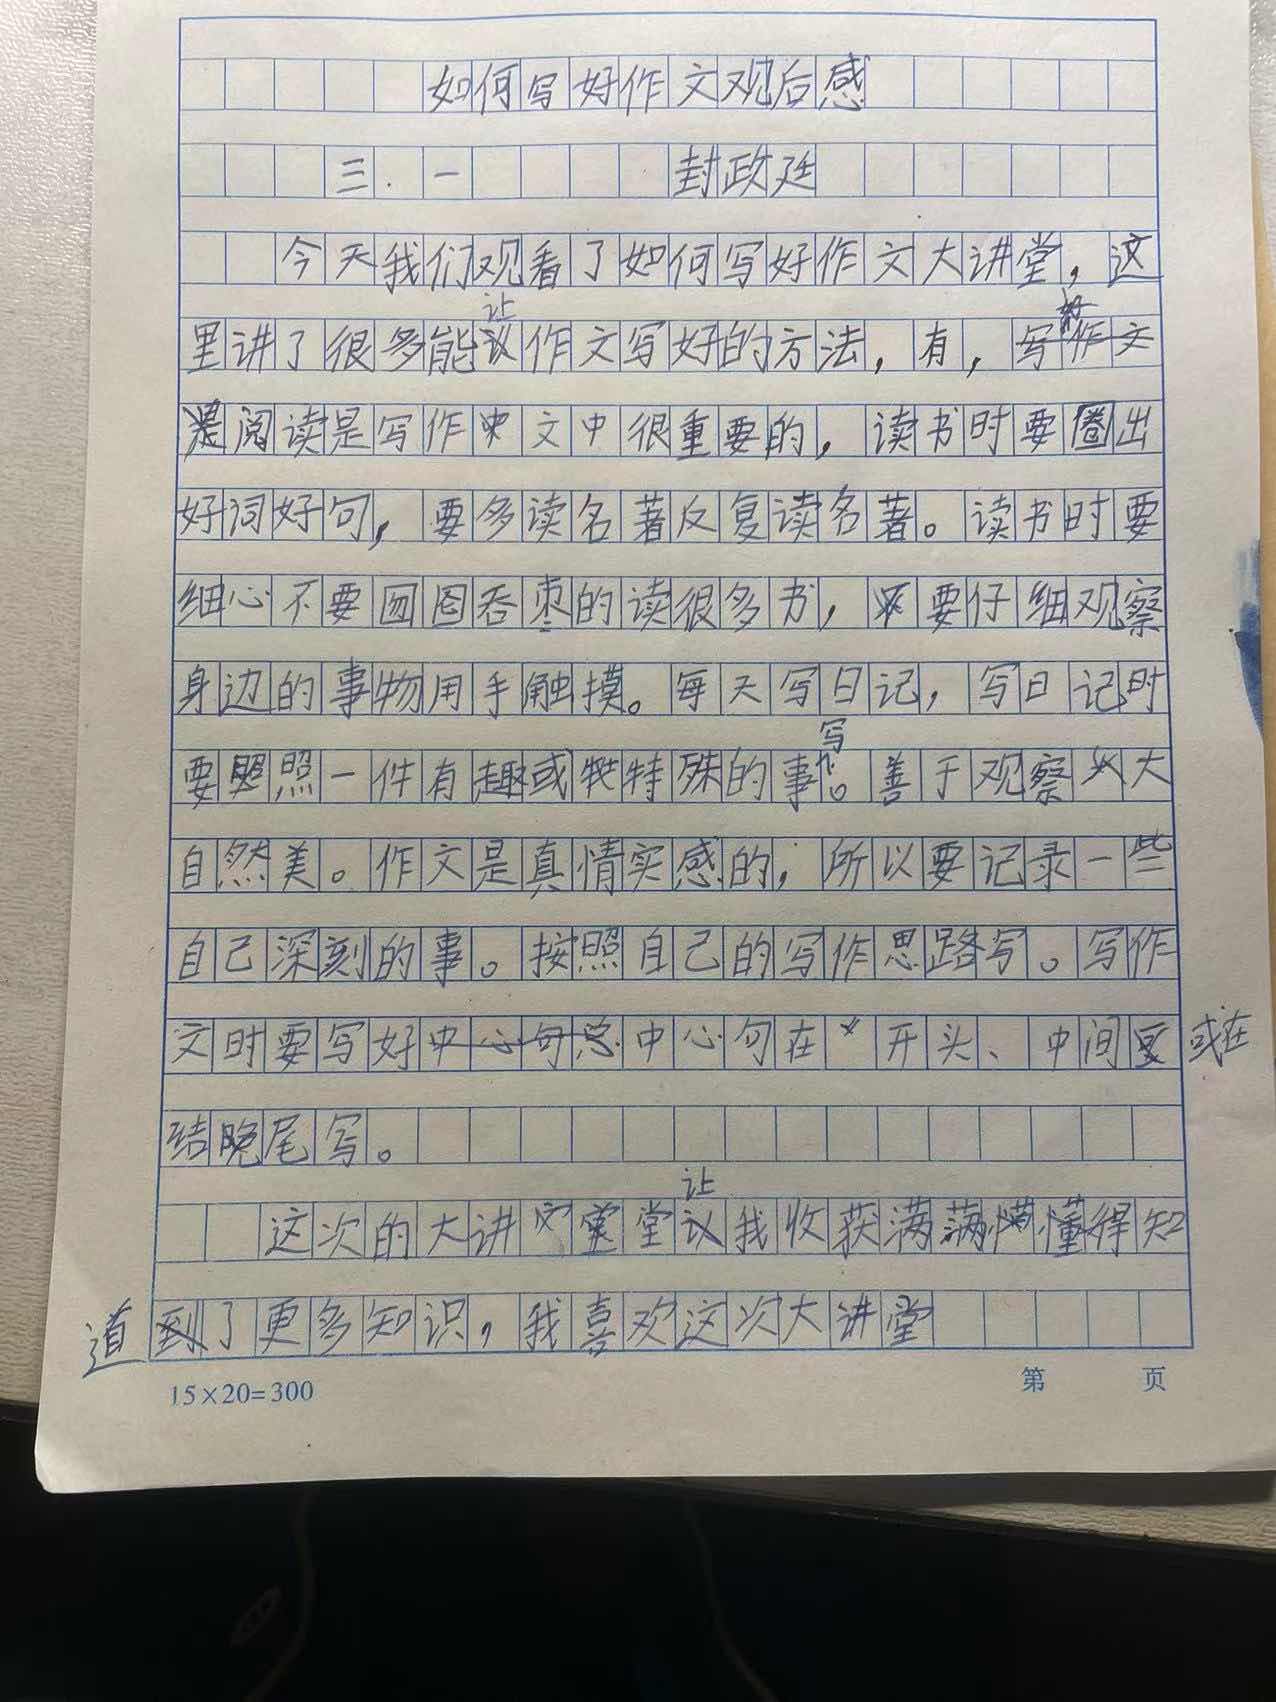 如何写好作文观后感
三.一 封政廷
今天我们观看了如何写好作文大讲堂，这
里讲了很多能让作文写好的方法，有，写好作文
是阅读是写作文中很重要的，读书时要圈出
好词好句，要多读名著反复读名著。读书时要
细心不要囫囵吞枣的读很多书，要仔细观察
身边的事物用手触摸。每天写日记，写日记时
要照一件有趣或特殊的事写。善于观察大
自然美。作文是真情实感的，所以要记录一些
自己深刻的事。按照自己的写作思路写。写作
文时要写好中心句总中心句在开头、中间或在
结尾写。
这次的大讲堂让我收获满满懂得知
道到了更多知识，我喜欢这次大讲堂
15×20=300 第 页